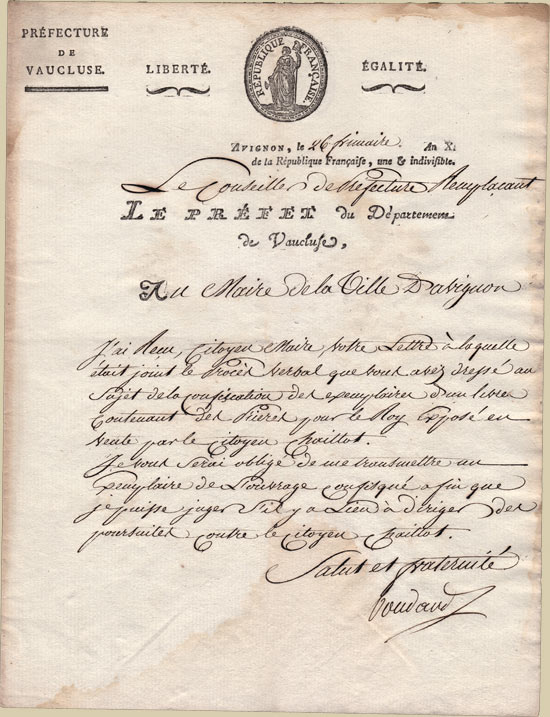 PRÉFECTURE
DE
VAUCLUSE.
LIBERTÉ.
RÉPUBLIQUE FRANÇAISE.
ÉGALITÉ.
AVIGNON, le 26 frimaire. An X.
de la République Française, une & indivisible.
Le Conseiller de Préfecture Remplaçant
LE PRÉFET du Département
de Vaucluse,
Au Maire de la Ville Davignon
J'ai Recu, Citoyen Maire, votre Lettre à laquelle
était joint le Procès verbal que vous avez dressé au
Sujet de la confiscation des exemplaires d'un livre
Contenant des Prières pour le Roy Exposé en
vente par le Citoyen Chaillot.
Je vous Serai obligé de me transmettre un
Exemplaire de L'ouvrage Confisqué afin que
je puisse juger S'il y a Lieu à diriger des
poursuites contre le Citoyen Chaillot.
Salut et fraternité